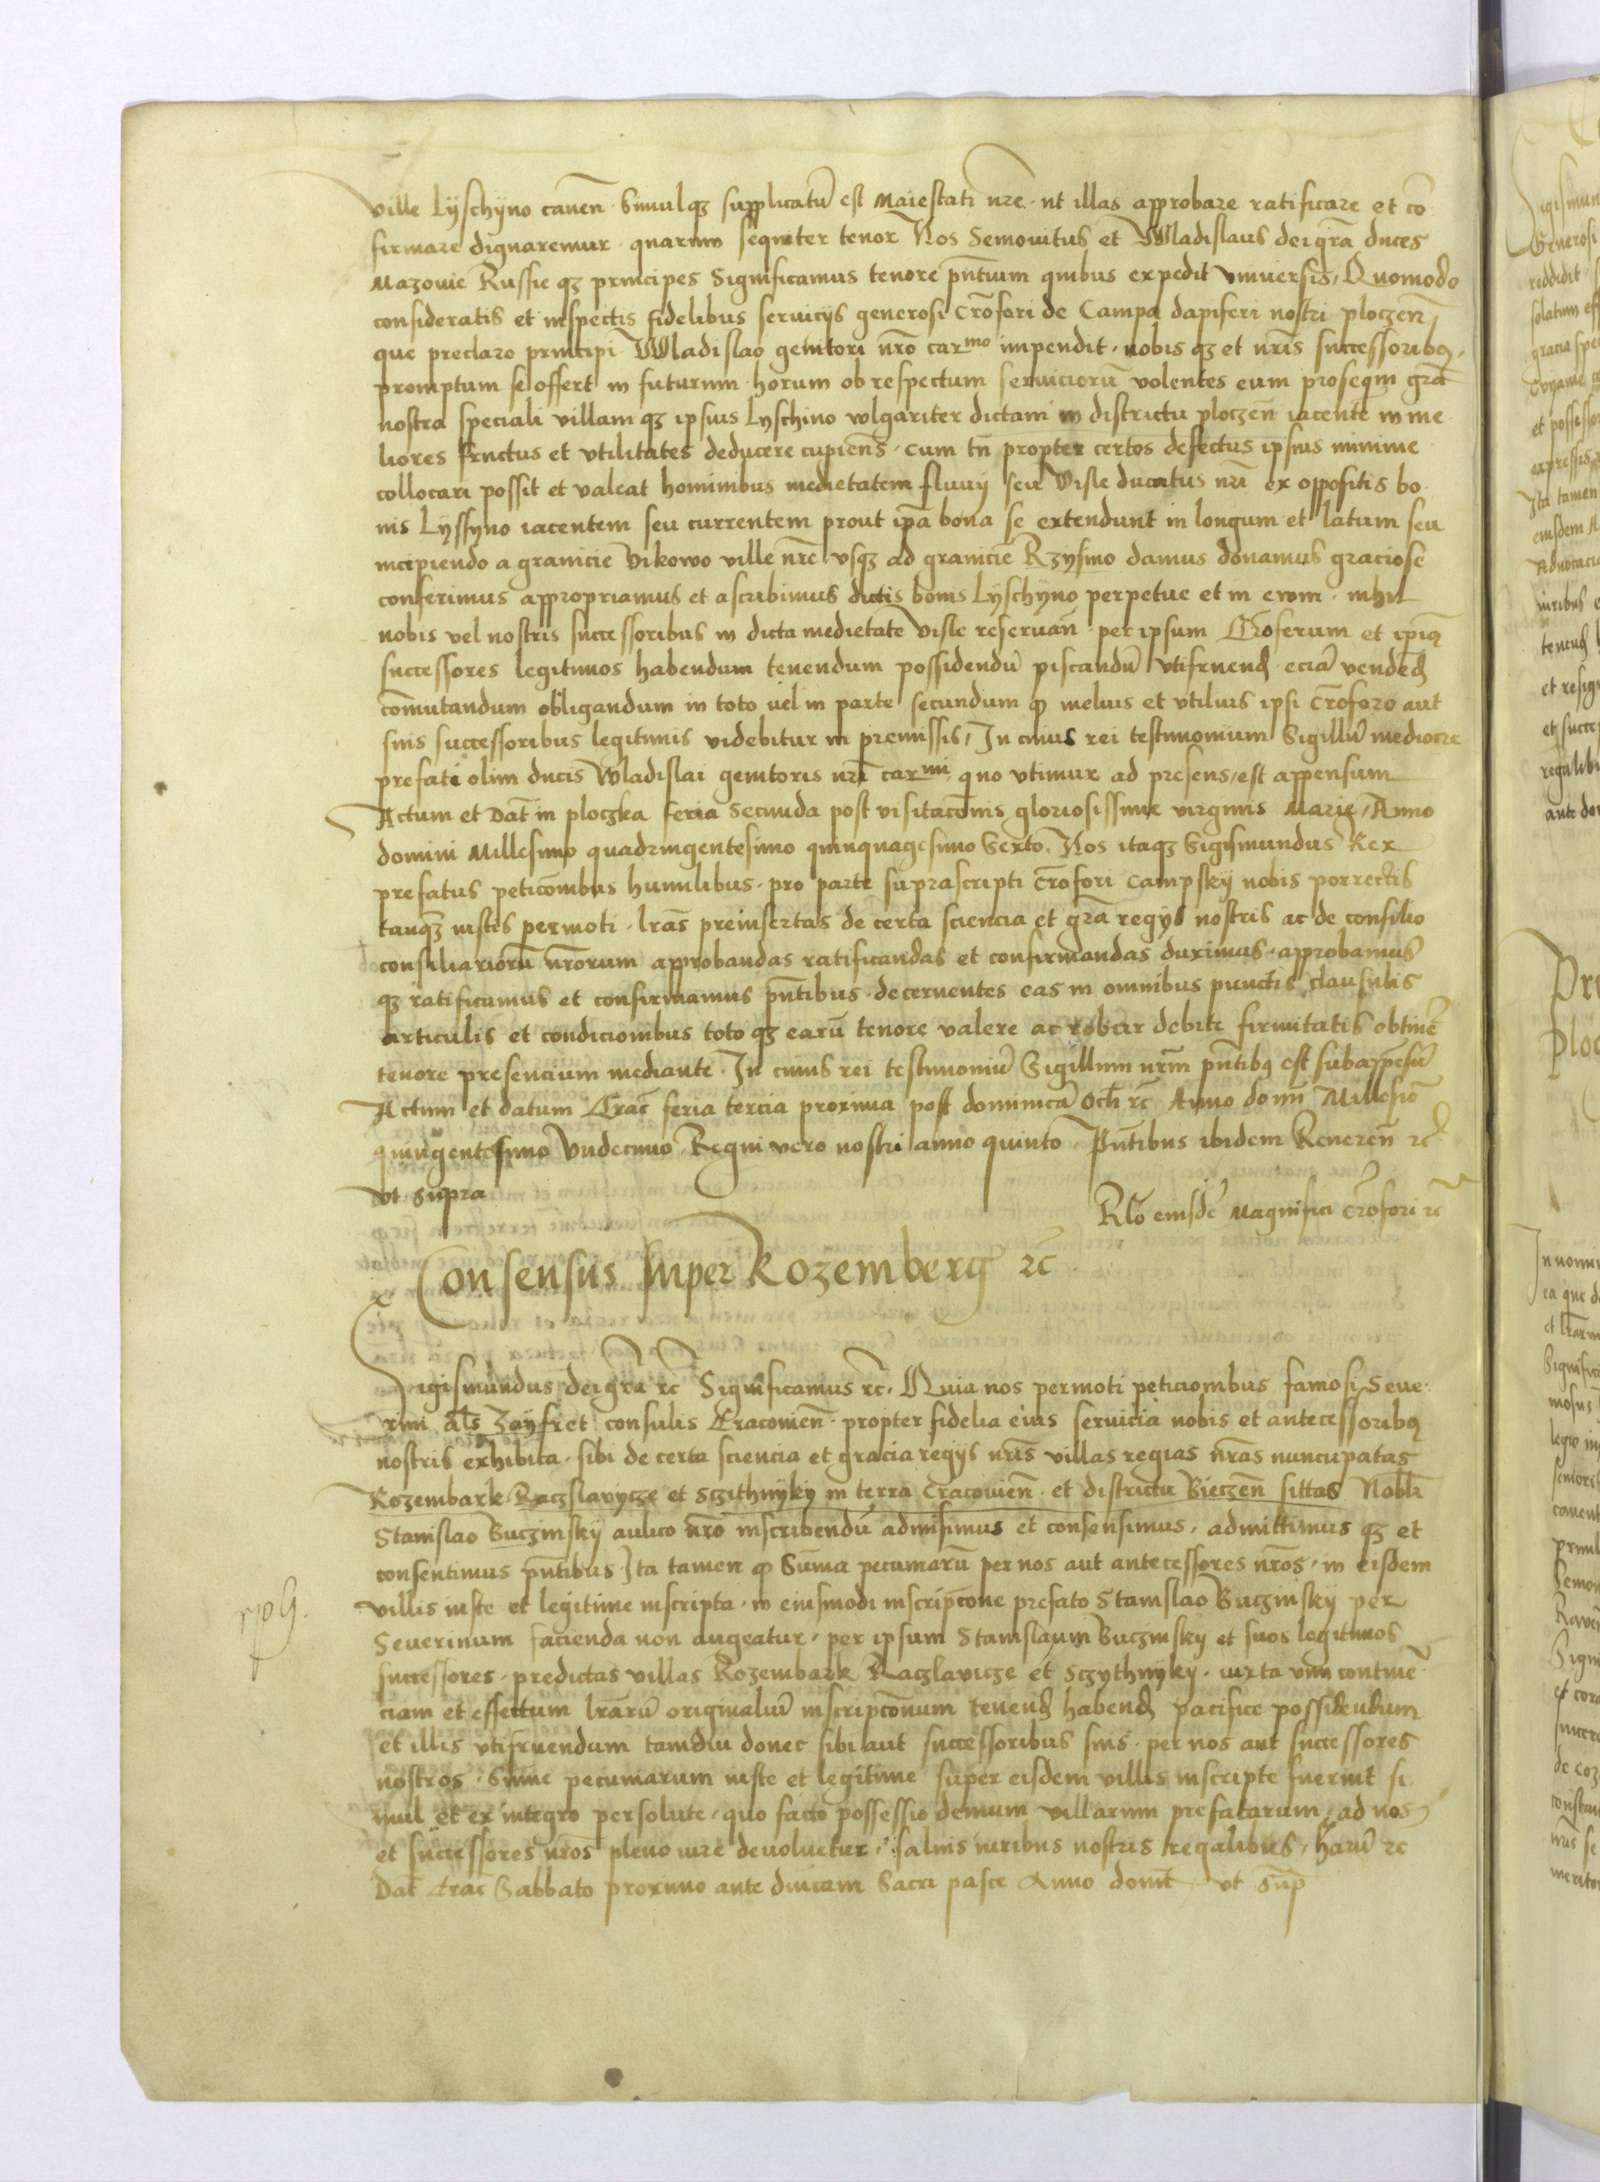 ville Lyschyno canen̄ · Simulqʒ supplicatū est Maiestati nr̄e · ut illas approbare ratificare et cō
firmare dignaremur · quarum sequiter tenor Nos Semouitus et Wladislaus dei gr̄a duces
Mazouie Russie qʒ principes Significamus tenore pn̄tium quibus expedit vniuersis, Quomodo
consideratis et inspectis fidelibus seruicijs generosi Cr̄ofori de Campa dapiferi nostri ploczen̄
que preclaro principi Wladislao genitori nr̄o carmo impendit · nobis qʒ et nr̄is successoribꝫ,
promptum se offert in futurum · horum ob respectum seruiciorū volentes eum prosequi gr̄a
nostra speciali villam qʒ ipsius Lyschino wlgariter dictam in districtu ploczen̄ iacentē in me
liores fructus et vtilitates deducere cupiens · cum tn̄ propter certos defectus ipsius minime
collocari possit et valeat hominibus medietatem fluuij seu Visle ducatus nr̄i ex oppositis bo
nis Lyssyno iacentem seu currentem prout ip̄a bona se extendunt in longum et latum seu
incipiendo a granicie Vikowo ville nr̄e vsqʒ ad graniciē Rzysino damus donamus graciose
conferimus appropriamus et ascribimus dictis bonis Lyschyno perpetue et in ewm · nihil
nobis vel nostris successoribus in dicta medietate Visle reseruan̄ · per ipsum Cr̄oferum et ip̄iꝰ
successores legitimos habendum tenendum possidendū piscandū vtifruend̄ · eciā vendend̄
com̄utandum obligandum in toto vel in parte secundum ꝙ melius et vtilius ipsi Cr̄oforo aut
suis successoribus legitimis videbitur in premissis, In cuius rei testimonium Sigillū mediocre
prefati olim ducis Wladislai genitoris nr̄i carmi quo vtimur ad presens, est appensum
Actum et Dat̄ in ploczka feria Secunda post visitacōnis gloriosissime virginis Marie, Anno
domini Millesimo quadringentesimo quinquagesimo Sexto. Nos itaqʒ Sigismundus Rex
prefatus peticōnibus humilibus · pro parte suprascripti Cr̄ofori Campsky nobis porrectis
tanqʒ iustis permoti · lr̄as preinsertas de certa sciencia et gr̄a regijs nostris ac de consilio
consiliariorū nr̄orum approbandas ratificandas et confirmandas duximus · approbamus
qʒ ratificamus et confirmamus pn̄tibus · decernentes eas in omnibus punctis clausulis
articulis et condicionibus toto qʒ earū tenore valere ac robur debite firmitatis obtinē
tenore presencium mediante · In cuius rei testimoniū Sigillum nr̄m pn̄tibꝫ est subappēsū
Actum et datum Crac̄ feria tercia proxima post dominicā Oculi rc̄ Anno domi Millesīo
quingentesimo Vndecimo, Regni vero nostri anno quinto, Pn̄tibus ibidem Reueren̄ rc̄
vt supra
Rlō eiusdē Magnifici Cr̄ofori rc̄
Consensus Super Rozemberg rc̄
Sigismundus dei gr̄a rc̄ Significamus rc̄. Quia nos permoti peticionibus famosi Seue
rini al̄s Zayfret consulis Cracouien̄ · propter fidelia eius seruicia nobis et antecessoribꝫ
nostris exhibita · sibi de certa sciencia et gracia regijs nr̄is villas regias nr̄as nuncupatas
Rozembark Raczslavycze et Sczithnyky in terra Cracouien̄ · et districtu Bieczen̄ sittas Nobli
Stanislao Buczinsky aulico nr̄o inscribendū admisimus et consensimus, admittimus qʒ et
consentimus pn̄tibus · Ita tamen ꝙ Sum̄a pecuniarū per nos aut antecessores nr̄os · in eisdem
villis iuste et legitime inscripta · in eiusmodi inscripcōne prefato Stanislao Buczinsky per
Seuerinum facienda non augeatur · per ipsum Stanislaum Buczinsky et suos legitimos
successores · predictas villas Rozembark Raczlavicze et Sczythnyky · iuxta vim continē
ciam et effectum lr̄arū originaliū inscripcōnum tenend̄ habend̄ pacifice possidendum
et illis vtifruendum tamdiu donec sibi aut successoribus suis · per nos aut successores
nostros · Sum̄e pecuniarum iuste et legitime super eisdem villis inscripte fuerint si
mul et ex integro persolute · quo facto possessio demum villarum prefatarum, ad nos
et successores nr̄os pleno iure deuoluetur, saluis iuribus nostris regalibus, harū rc̄
Dat̄ Crac̄ Sabbato proximo ante dnicam Sacri pasce Anno domi vt Sup̄